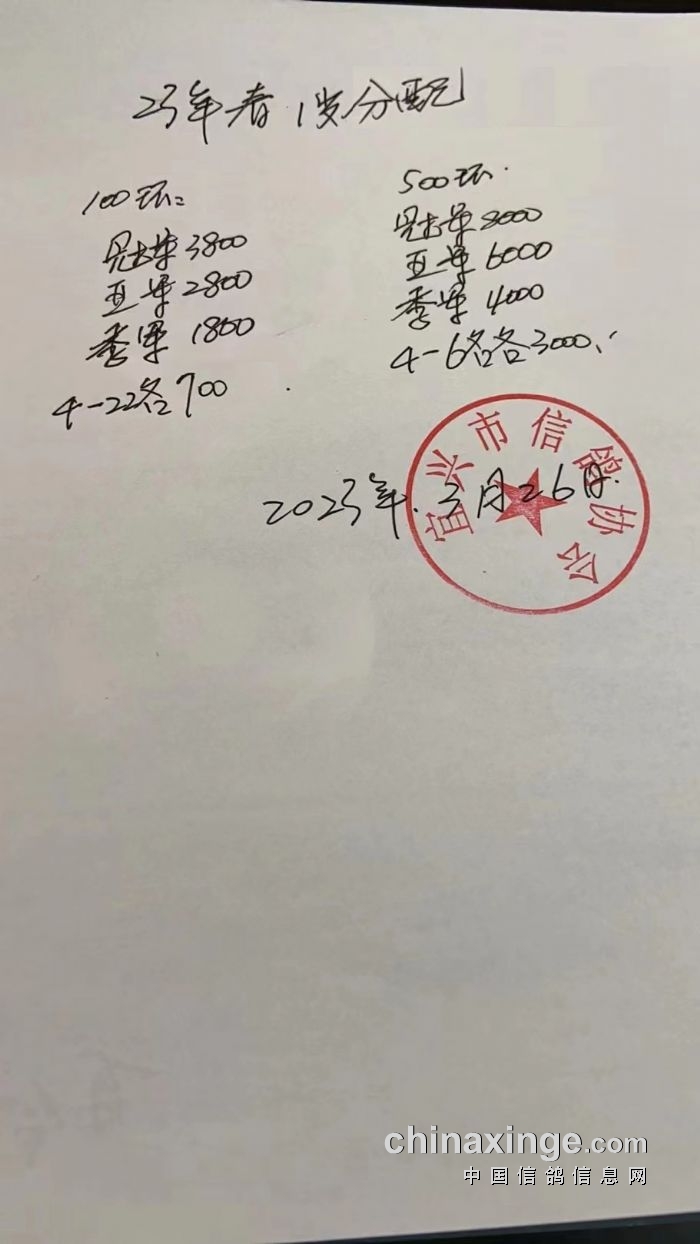 23年春1岁分配
100环:
冠军3800
亚军2800
季军1800
4-22名700
500环.
冠军8000
亚军6000
季军4000
4-6名各3000.
2023年.3月26日.
宜兴市信鸽协会
chinaxinge.com
中国信鸽信息网